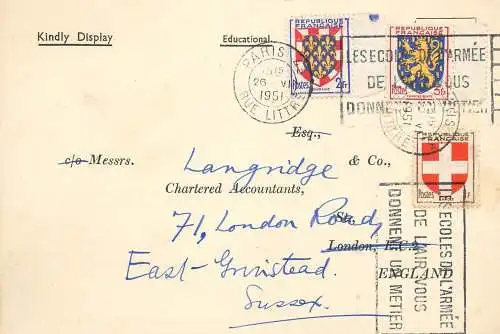 Kindly Display
Educational
PARIS
RUE LITTRE
1951
REPUBLIQUE
FRANÇAISE
Postes 2F
REPUBLIQUE
FRANÇAISE
Postes 5F
LES ECOLES DE L'ARMÉE
DE L'AIR VOUS
DONNENT UN METIER
REPUBLIQUE
FRANÇAISE
Postes
Esq.,
c/o Messrs. Langridge & Co.,
Chartered Accountants,
71, London Road,
London, E.C.2.
East-Grinstead. ENGLAND
Sussex.
LES ECOLES DE L'ARMÉE
DE L'AIR VOUS
DONNENT UN METIER